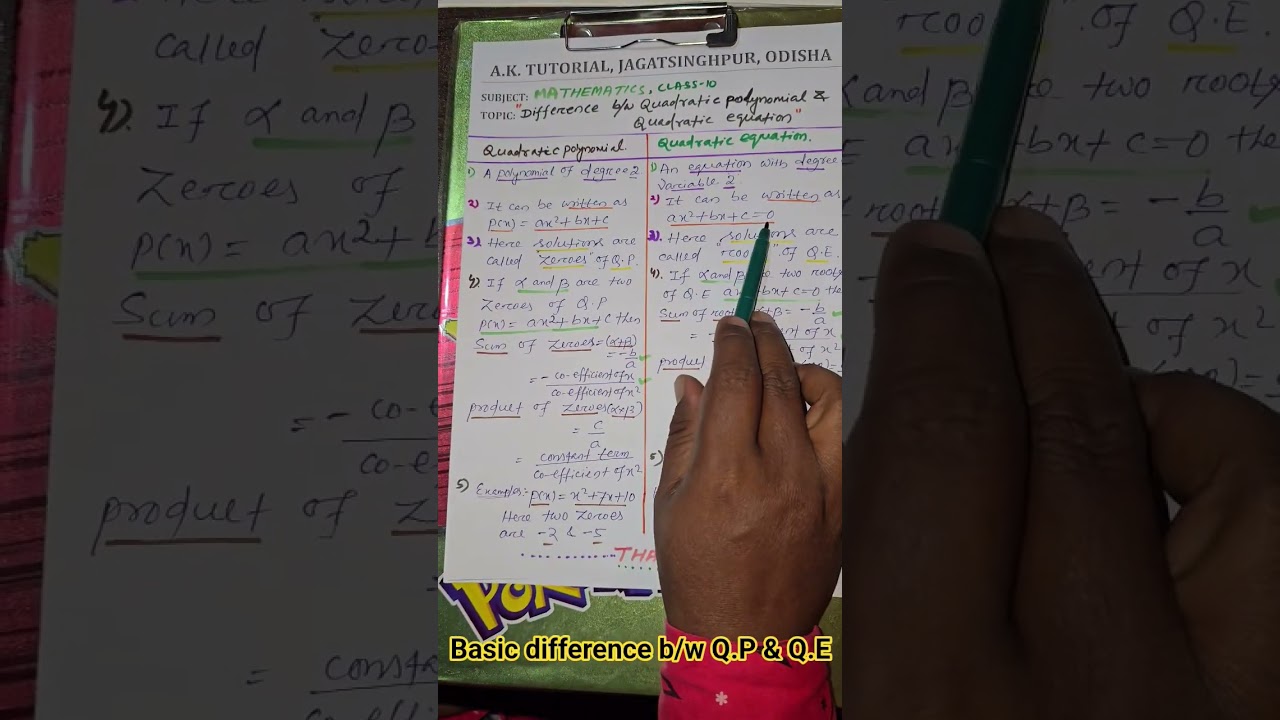 A.K. TUTORIAL, JAGATSINGHPUR, ODISHA
SUBJECT: MATHEMATICS, CLASS-10
TOPIC: "Difference b/w Quadratic polynomial &
Quadratic equation"
Quadratic polynomial.
1) A polynomial of degree 2
2) It can be written as
p(x) = ax²+bx+c
3) Here solutions are
called "Zeroes" of Q.P.
4) If α and β are two
Zeroes of Q.P
p(x) = ax²+bx+c then
Sum of Zeroes = (α+β)
= -b/a
= - co-efficient of x / co-efficient of x²
product of Zeroes (α×β)
= c/a
= constant term / co-efficient of x²
5) Example:- p(x) = x²+7x+10
Here two Zeroes
are -2 & -5
Quadratic equation.
1) An equation with degree
variable 2
2) It can be written as
ax²+bx+c=0
3). Here solutions are
called "roo " of Q.E.
4). If α and β two roots
of Q.E bx+c=0 the
Sum of root +β = -b/a
of x
of x²
product
5)
THA
Basic difference b/w Q.P & Q.E
called Zeroe
4). If α and β
Zeroes of
p(x) = ax²+bx
Sum of Z
= - co-e
co-e
product of Z
= consta
co-effi
roo of Q.E.
and β two roots
bx+c=0 the
root +β = -b/a
of x
of x²